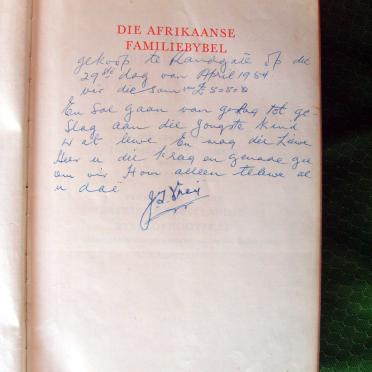 DIE AFRIKAANSE
FAMILIEBYBEL
gekoop te Randgate op die
29ste dag van April 1954
vir die som van £5:0:0
En Sal gaan van geslag tot ge-
slag aan die Jongste kind
wat lewe En mag die Liewe
Heer u die krag en genade gee
om vir Hom alleen te lewe al
u dae